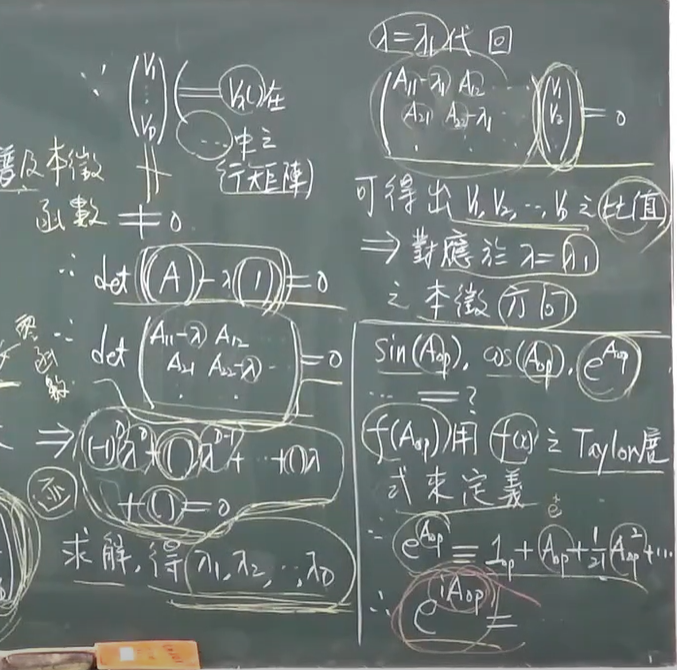 ∵ (V₁ ⋮ V_D) (= V₂()在
中之
行矩陣)
及本徵
函數 ≠ 0
∴ det((A) - λ(1)) = 0
∴ det(A₁₁-λ A₁₂
A₂₁ A₂₂-λ ⋯) = 0
⇒ (-1)ᴰλᴰ + ()λᴰ⁻¹ + ⋯ + ()λ
+ () = 0
求解,得 λ₁, λ₂, ⋯, λ_D
λ=λ₁代回
(A₁₁-λ₁ A₁₂ ⋯
A₂₁ A₂₂-λ₁ ⋯)(V₁ V₂ ⋮) = 0
可得出 V₁, V₂, ⋯, V_D 之比值
⇒ 對應於 λ=λ₁
之本徵方向
sin(A_op), cos(A_op), e^{A_op}
⋯ = ?
f(A_op)用 f(x) 之 Taylor展
式來定義
∵ e^{A_op} ≡ 1_op + A_op + 1/2! A_op² + ⋯
∴ e^{iA_op} =